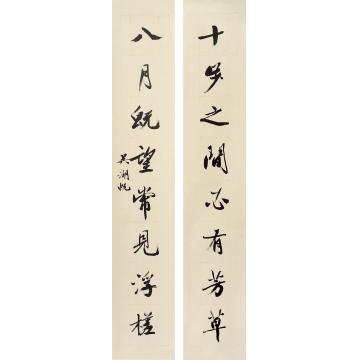 十步之間必有芳草
八月既望常見浮槎
吴湖帆